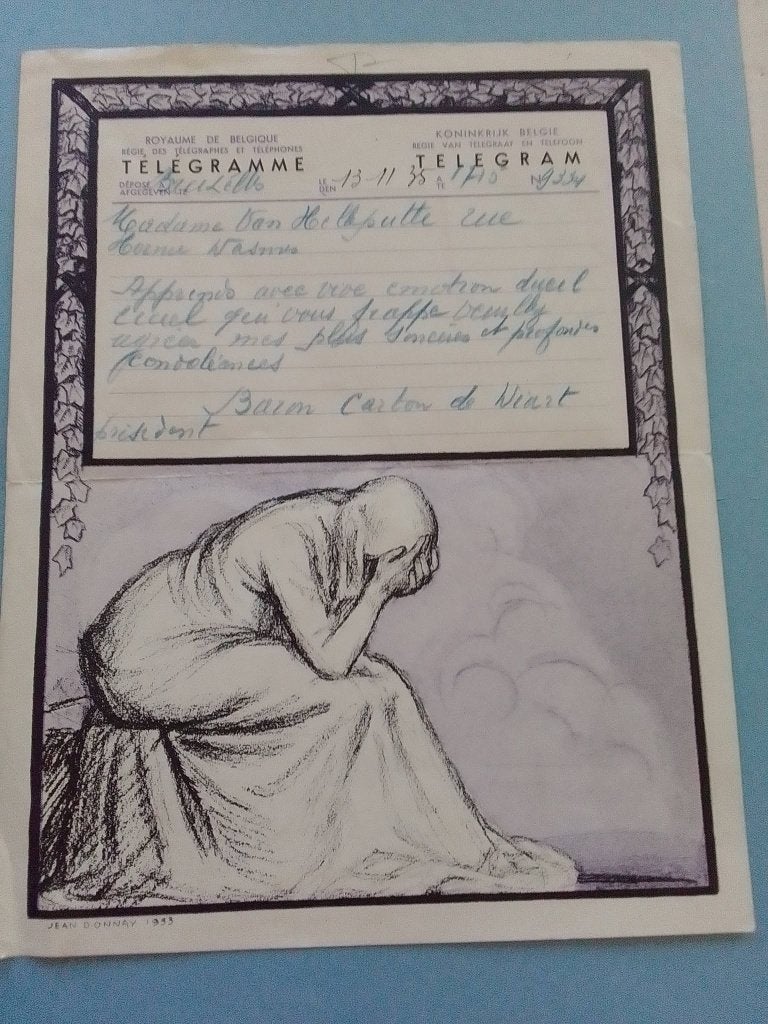 ROYAUME DE BELGIQUE
RÉGIE DES TÉLÉGRAPHES ET TÉLÉPHONES
TÉLÉGRAMME
KONINKRIJK BELGIE
REGIE VAN TELEGRAAF EN TELEFOON
TELEGRAM
DÉPOSÉ Bruxelles LE 13-11 35 À N° 9334
AFGEGEVEN TE DEN TE
Madame Van Hilleputte rue
Wasmes
Apprends avec vive emotion dueil
cruel qui vous frappe veuillez
agreer mes plus sinceres et profondes
condoléances
Baron Carton de Wiart
président
JEAN DONNAY 1933